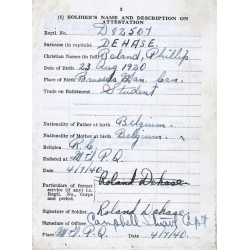 2
(1) SOLDIER'S NAME AND DESCRIPTION ON ATTESTATION
Regtl. No. D82507
Surname (in capitals) DEHASE
Christian Names (in full) Roland, Phillip
Date of Birth 23 Aug 1920
Place of Birth Bruxells Man. Can.
Trade on Enlistment Student
Nationality of Father at Birth Belgium.
Nationality of Mother at Birth Belgium.
Religion R.C.
Enlisted at Mtl. P.Q.
On 4/7/40.
Particulars of former service (if any) i.e. Regtl. No., Corps and period.
Roland Dehase
Signature of Soldier Roland Dehase
Signature of Officer Campbell Stuart Capt
Place Mtl. P.Q. Date 4/7/40.